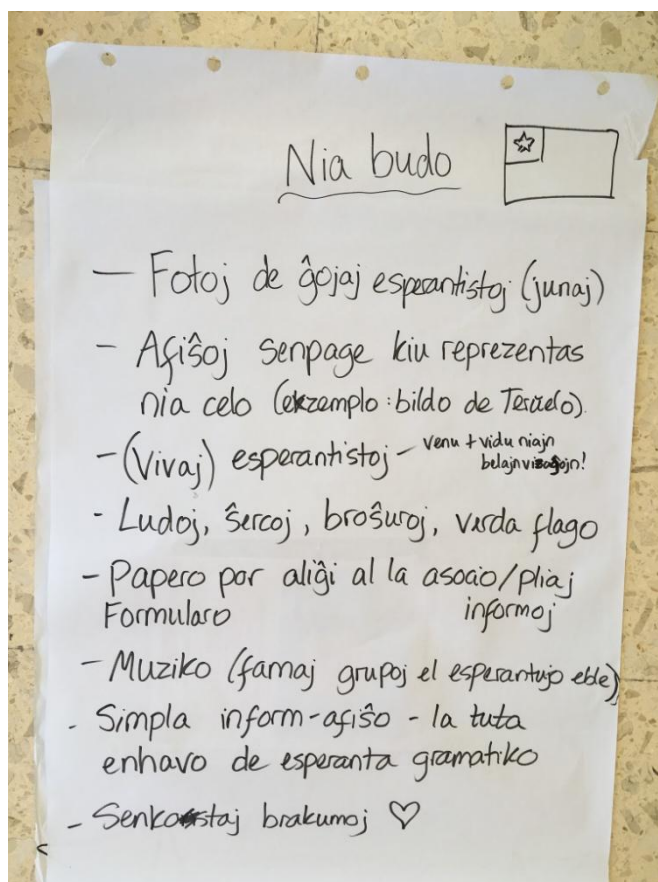 Nia budo
— Fotoj de ĝojaj esperantistoj (junaj)
- Afiŝoj senpage kiu reprezentas
nia celo (ekzemplo: bildo de Teruelo).
- (Vivaj) esperantistoj - venu + vidu niajn
belajn vizaĝojn!
- Ludoj, ŝercoj, broŝuroj, verda flago
- Papero por aliĝi al la asocio/pliaj
Formularo informoj
- Muziko (famaj grupoj el esperantujo eble)
- Simpla inform-afiŝo - la tuta
enhavo de esperanta gramatiko
- Senkostaj brakumoj ♡